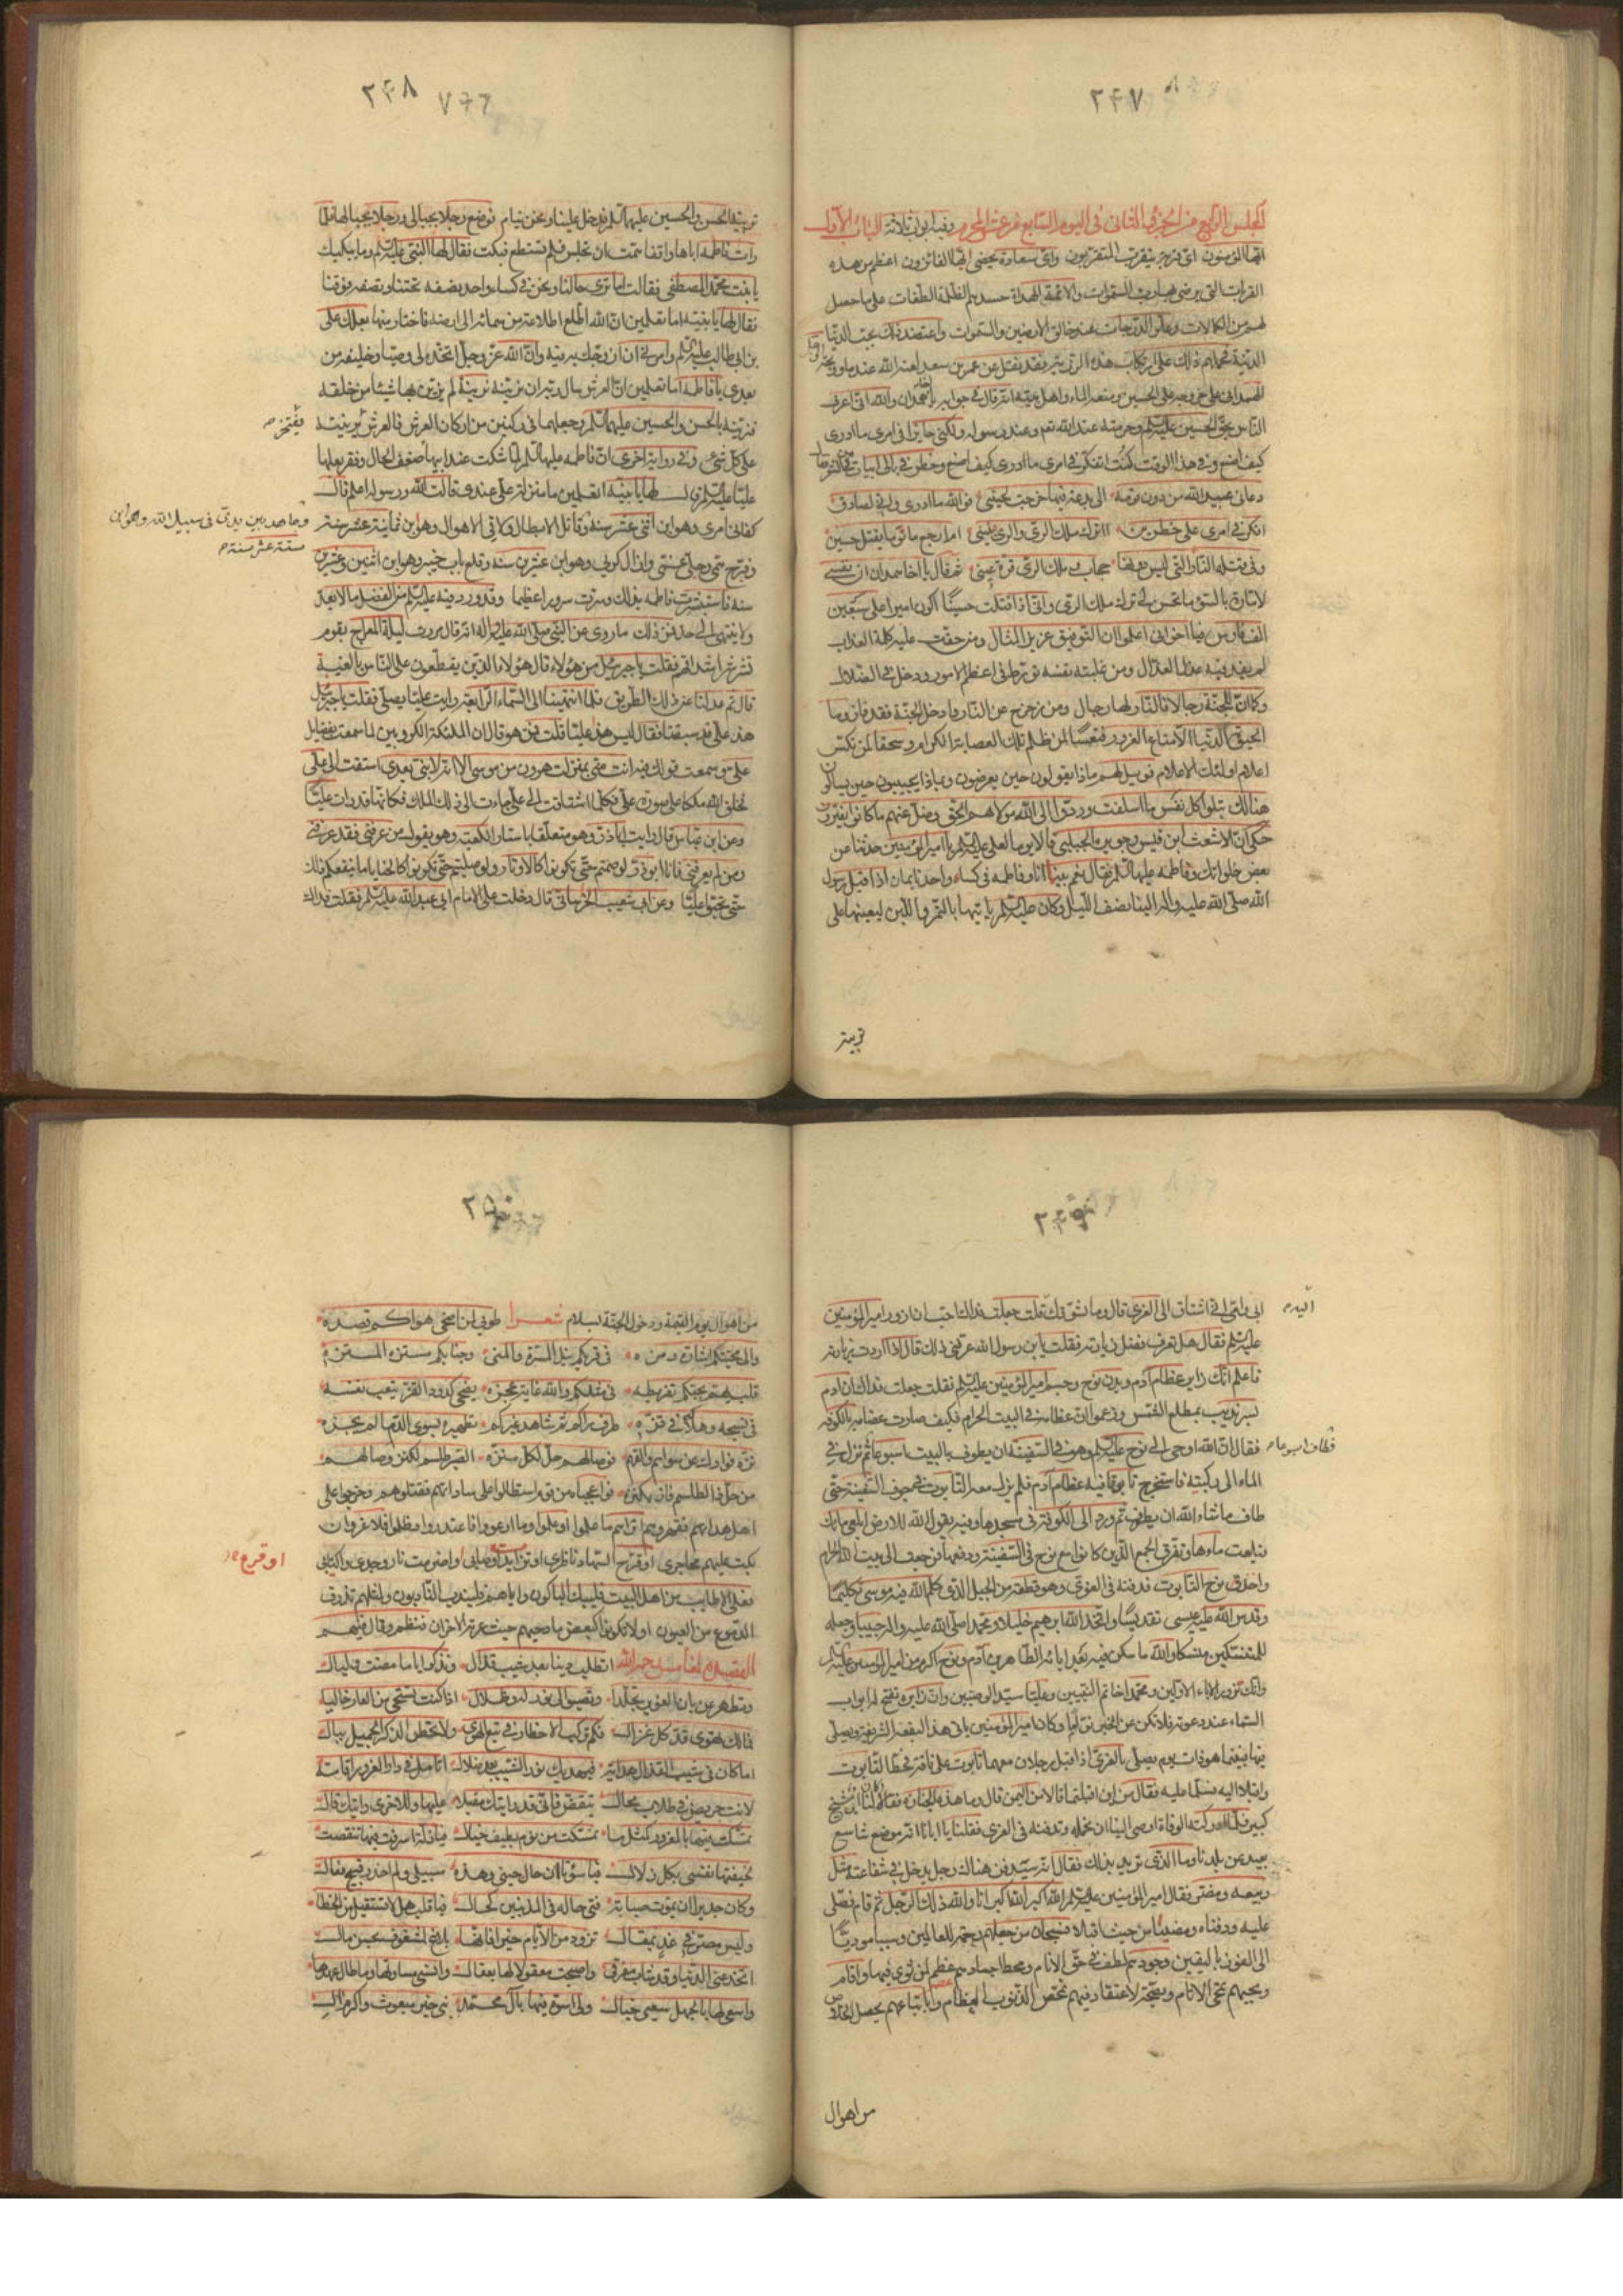 ٢٤٧
المجلس الرابع من الجزء الثانى فى اليوم السابع من عشر المحرم وفيه ابواب ثلاثة الباب الاول
ايها المؤمنون اى قربة يتقرب المتقربون واى سعادة يحضى بها الفائزون اعظم من هذه
القربات التى يرضى بها رب السموات والائمة الهداة حسدهم الظلمة الطغات على ما حصل
لهم من الكمالات وعلو الدرجات عند خالق الارضين والسموات واعتضد ذلك بحب الدنيا
الدنية فحملهم ذلك على ارتكاب هذه الرزية فقد نقل عن عمر بن سعد لعنه الله عندما وبخه
الهمدانى على خروجه على الحسين ومنعه الماء واهل بيته انه قال فى جوابه يا اخا همدان والله انى اعرف
الناس بحق الحسين عليه السلم وحرمته عند الله تعم وعند رسوله ولكنى حاير فى امرى ما ادرى
كيف اصنع وفى هذا الوقت كنت اتفكر فى امرى ما ادرى كيف اصنع وخطر فى بالى ابيات
دعانى عبيد الله من دون قومه الى بدعة فيها خرجت لحينى فوالله ما ادرى وانى لصادق
افكر فى امرى على خطرين ءاترك ملك الرى والرى منيتى ام ارجع ماثوما بقتل حسين
وفى قتله النار التى ليس دونها حجاب و ملك الرى قرة عينى ثم قال يا اخا همدان ان نفسى
لامارة بالسوء ما تحسن لى ترك ملك الرى وانى اذا قتلت حسينا اكون اميرا على سبعين
الف فارس فيا اخوانى اعلموا ان التوفيق عزيز المثال ومن حقت عليه كلمة العذاب
لم يفد فيه عذل العذال ومن غلبته نفسه تورط فى اعظم الامور ودخل فى الضلال
وكما ان للجنة رجالا فالنار لها رجال ومن زحزح عن النار وادخل الجنة فقد فاز وما
الحيوة الدنيا الا متاع الغرور فتعسا لمن ظلم تلك العصابة الكرام وسحقا لمن نكس
اعلام اولئك الاعلام فويل لهم ماذا يقولون حين يعرضون وبماذا يجيبون حين يسالون
هنالك تبلوا كل نفس ما اسلفت وردوا الى الله مولاهم الحق وضل عنهم ما كانوا يفترون
حكى ان الاشعث ابن قيس وجويرة الجبلى قالا يوما لعلى عليه السلم يا امير المؤمنين حدثنا من
بعض خلواتك وفاطمة عليها السلم فقال نعم بينما انا وفاطمة فى كساء واحد نايمان اذا قبل رسول
الله صلى الله عليه واله الينا نصف الليل وكان عليه السلم ياتيها بالتمر واللبن ليعينها على
تربيته
٢٤٨ ٧٦٦
تربية الحسن والحسين عليهما السلم فدخل علينا ونحن نيام فوضع رجلا بحيالى ورجلا بحيالها فلما
رات فاطمة اباها واقفا همت ان تجلس فلم تستطع فبكت فقال لها النبى عليه السلم وما يبكيك
يا بنت محمد المصطفى فقالت اما ترى حالنا ونحن فى كساء واحد نصفه تحتنا ونصفه فوقنا
فقال لها يا بنيه اما تعلمين ان الله اطلع اطلاعة من سمائه الى ارضه فاختار منها بعلك على
بن ابى طالب عليه السلم وامرنى ان ازوجك به وانه الله عز وجل اتخذه لى وصيا وخليفة من
بعدى يا فاطمة اما تعلمين ان العرش سال ربه ان يزينه بزينة لم يزين بها شيئا من خلقه
فزينه بالحسن والحسين عليهما السلم وجعلهما فى ركنين من اركان العرش فالعرش بزينته
يفتخر ص
على كل شئ وفى رواية اخرى ان فاطمة عليها السلم لما شكت عند ابيها ضعف الحال وفقر بعلها
عليا عليه السلم قال لها يا بنية اتعلمين ما منزلة على عندى قالت الله ورسوله اعلم قال
كفانى امرى وهو ابن اثنى عشر سنة وقاتل الابطال ولاقى الاهوال وهو ابن ثمانية عشر سنة
وجاهد بين يدى فى سبيل الله وهو ابن ستة عشر سنة ص
وفرج همى وجلى غمتى وازال كربى وهو ابن عشرين سنة وقلع باب خيبر وهو ابن اثنين وعشرين
سنة فاستبشرت فاطمة بذلك وسرت سرورا عظيما وقد ورد فيه عليه السلم من الفضل ما لا يعد
ولا ينتهى الى حد فمن ذلك ما روى عن النبى صلى الله عليه واله انه قال مررت ليلة المعراج بقوم
تشرشر اشداقهم فقلت يا جبرئيل من هؤلاء قال هؤلاء الذين يقطعون على الناس بالغيبة
قال ثم عدلنا عن ذلك الطريق فلما انتهينا الى السماء الرابعة رايت عليا يصلى فقلت يا جبرئيل
هذا على قد سبقنا فقال ليس هذا عليا قلت فمن هو قال ان الملئكة الكروبيين لما سمعت بفضايل
على وسمعت قولك فيه انت منى بمنزلة هرون من موسى الا انه لا نبى بعدى اشتاقت الى على
فخلق الله ملكا على صورة على فكلما اشتاقت الى على جاءت الى ذلك الملك فكانها قد رات عليا
وعن ابن عباس قال رايت اباذر وهو متعلق باستار الكعبة وهو يقول من عرفنى فقد عرفنى
ومن لم يعرفنى فانا ابو ذر لو صمتم حتى تكونوا كالاوتار ولو صليتم حتى تكونوا كالحنايا ما ينفعكم ذلك
حتى تحبوا عليا وعن ابى شعيب الخراسانى قال دخلت على الامام ابى عبد الله عليه السلم فقلت فداك
٢٤٩
ابى وامى انى اشتاق الى الغرى قال وما شوقك قلت جعلت فداك احب ان ازور امير المؤمنين
اليه ص
عليه السلم فقال هل تعرف فضل زيارته فقلت يابن رسول الله عرفنى ذلك قال اذا اردت زيارته
فاعلم انك زاير عظام آدم وبدن نوح وجسم امير المؤمنين عليه السلم فقلت جعلت فداك ان ادم
بسرنديب بمطلع الشمس وزعموا ان عظامه فى البيت الحرام فكيف صارت عظامه بالكوفة
فقال ان الله اوحى الى نوح عليه السلم وهو فى السفينة ان يطوف بالبيت اسبوعا ثم نزل فى
فطاف اسبوعا ص
الماء الى ركبتيه فاستخرج تابوتا فيه عظام آدم فلم يزل معه التابوت فى جوف السفينة حتى
طاف ما شاء الله ان يطوف ثم ورد الى الكوفة فى مسجدها وفيه يقول الله للارض ابلعى ماءك
فبلعت ماءها وتفرق الجمع الذين كانوا مع نوح فى السفينة
واخذ نوح التابوت فدفنه فى الغرى وهو قطعة من الجبل الذى كلم الله فيه موسى تكليما
وقدس الله عليه عيسى تقديسا واتخذ الله ابرهيم خليلا ومحمدا صلى الله عليه واله حبيبا وجعله
للمتنسكين منسكا والله ما سكن فيه بعد ابائه الطاهرين آدم ونوح اكرم من امير المؤمنين عليه السلم
وانك تزور الاباء الاولين ومحمدا خاتم النبيين وعليا سيد الوصيين وان زايره تفتح له ابواب
السماء عند دعوته فلا تكن عن الخير نواما وكان امير المؤمنين ياتى هذا البقعة الشريفة ويصلى
فيها فبينما هو ذات يوم يصلى بالغرى اذا قبل رجلان معهما تابوت على ناقة فحطا التابوت
واقبلا اليه فسلما عليه فقال من اين اقبلتما قالا من اليمن قال وما هذه الجنازة فقالا كان لنا اب شيخ
كبير فلما ادركته الوفاة اوصى الينا ان نحمله وندفنه فى الغرى فقلنا يا ابانا انه موضع شاسع
بعيد عن بلدنا وما الذى تريد بذلك فقال انه سيدفن هناك رجل يدخل فى شفاعته مثل
ربيعة ومضر فقال امير المؤمنين عليه السلم الله اكبر الله اكبر انا والله ذلك الرجل ثم قام فصلى
عليه ودفناه ومضيا من حيث اقبلا فسبحان من جعلهم رحمة للعالمين وسببا موديا
الى الفوز باليقين وجودهم لطف فى حق الانام ومحط اجسادهم عظم لمن ثوى فيها واقام
وبحبهم تمحى الاثام وبصحة الاعتقاد فيهم تمحص الذنوب العظام وباتباعهم يحصل الخلاص
من اهوال
٢٥٠
من اهوال يوم القيمة ودخول الجنة بسلام شعرا طوبى لمن اضحى هواكم قصده
والى محبتكم اشارة رمزه فى قربكم نيل المسرة والمنى وجنابكم متنزه المستنزه
قلب يهيم بحبكم تفريطه فى مثلكم والله غاية عجزه يضحى كدود القز يتعب نفسه
فى نسجه وهلاكه فى قزه طرف يراكم ثم شاهد غيركم تطهيره بسوى الدما لم يجزه
نزه فوادك عن سواهم والقهم فوصالهم حل لكل منزه الصبر طلسم لكنز وصالهم
من حل ذا الطلسم فاز بكنزه فواعجباه من قوم استطالوا على ساداتهم فقتلوهم وخرجوا على
اهل هداتهم فقهروهم اتراهم ما علموا او علموا وما ارعووا ام عندروا وظلموا فلا غروان
بكيت عليهم محاجرى او قرح السهاد ناظرى او تزايدت اوصابى واضرمت نار وجدى واكتئابى
او قرح ص
فعلى الاطايب من اهل البيت فليبك الباكون واياهم فليندب النادبون ولمثلهم تذرف
الدموع من العيون او لا تكونوا كبعض مادحيهم حيث عرته الاحزان فنظم وقال فيهم
القصيدة لخامس رحمه الله اتطلب دينا بعد شيب قذال وتذكر اياما مضت وليال
فمالك تهوى قد كل غزال فكم تركب الاخطار فى تبع الهوى ولا تخطر الذكر الجميل ببال
اما كان فى شيب القذال هداية فيهديك نور الشيب بعد ضلال اتامل فى دار الغرور اقامة
لانت حريص فى طلاب محال
تمسكت منها بالغرور كمثل ما تمسكت من نوم بطيف خيال
سبيلى ولم احذر قبيح فعال
فيا قلب هل لا تستقيل من الخطا
وليس مصرى فى غد بمقال تزود من الايام
واسعى لها بالجهل سعى خيال ولى اسوة فيها بآل محمد بنى خير مبعوث واكرم ال